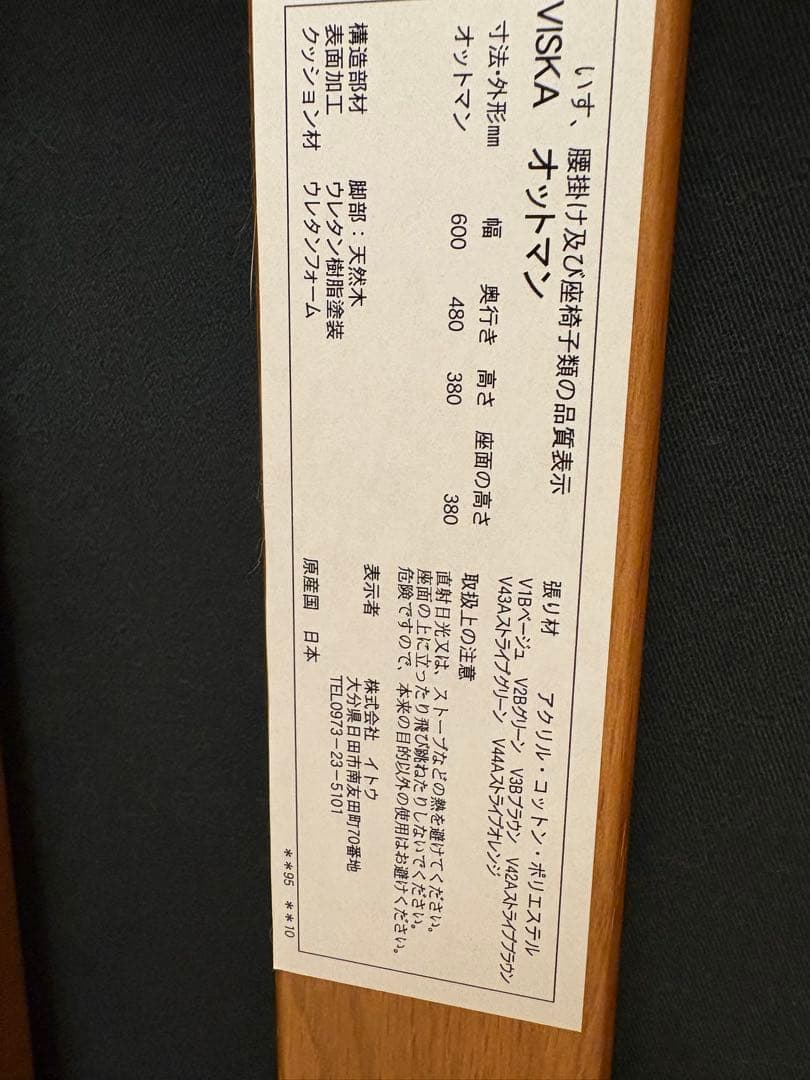 いす、腰掛け及び座椅子類の品質表示
VISKA オットマン
寸法・外形mm 幅 奥行き 高さ 座面の高さ
オットマン 600 480 380 380
構造部材 脚部：天然木
表面加工 ウレタン樹脂塗装
クッション材 ウレタンフォーム
張り材 アクリル・コットン・ポリエステル
V1Bベージュ V2Bグリーン V3Bブラウン V42Aストライプブラウン
V43Aストライプグリーン V44Aストライプオレンジ
取扱上の注意
直射日光又は、ストーブなどの熱を避けてください。
座面の上に立ったり飛び跳ねたりしないでください。
危険ですので、本来の目的以外の使用はお避けください。
表示者 株式会社 イトウ
大分県日田市南友田町70番地
TEL0973-23-5101
原産国 日本
＊＊95 ＊＊10